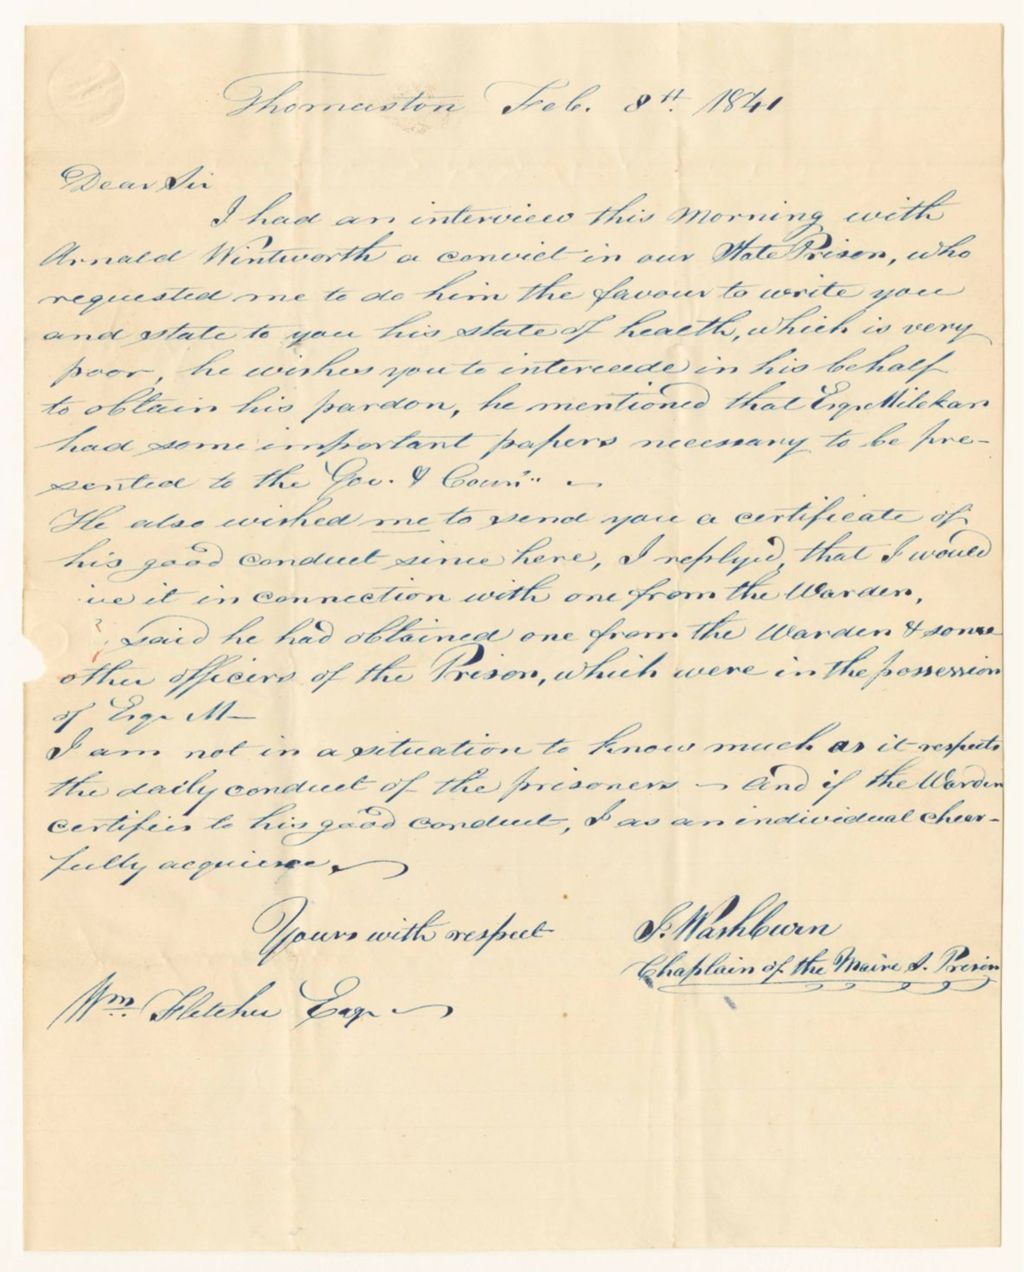 Thomaston Feb. 8th. 1841
Dear Sir
I had an interview this Morning with
Arnald Wintworth a convict in our State Prison, who
requested me to do him the favour to write you
and state to you his state of health, which is very
poor, he wishes you to intercede in his behalf
to obtain his pardon, he mentioned that Esqr. Milekan
had some important papers necessary to be pre-
sented to the Gov. & Coun"..
He also wished me to send you a certificate of
his good conduct since here, I replyed, that I would
ive it in connection with one from the Warden,
said he had obtained one from the Warden & some
other officers of the Prison, which were in the possession
of Esqr. M—
I am not in a situation to know much as it respects
the daily conduct of the prisoners – And if the Warden
certifies to his good conduct, I as an individual cheer-
fully acquiesce,
Yours with respect
J. Washburn
Chaplain of the Maine S. Prison
Wm. Fletcher Esqr